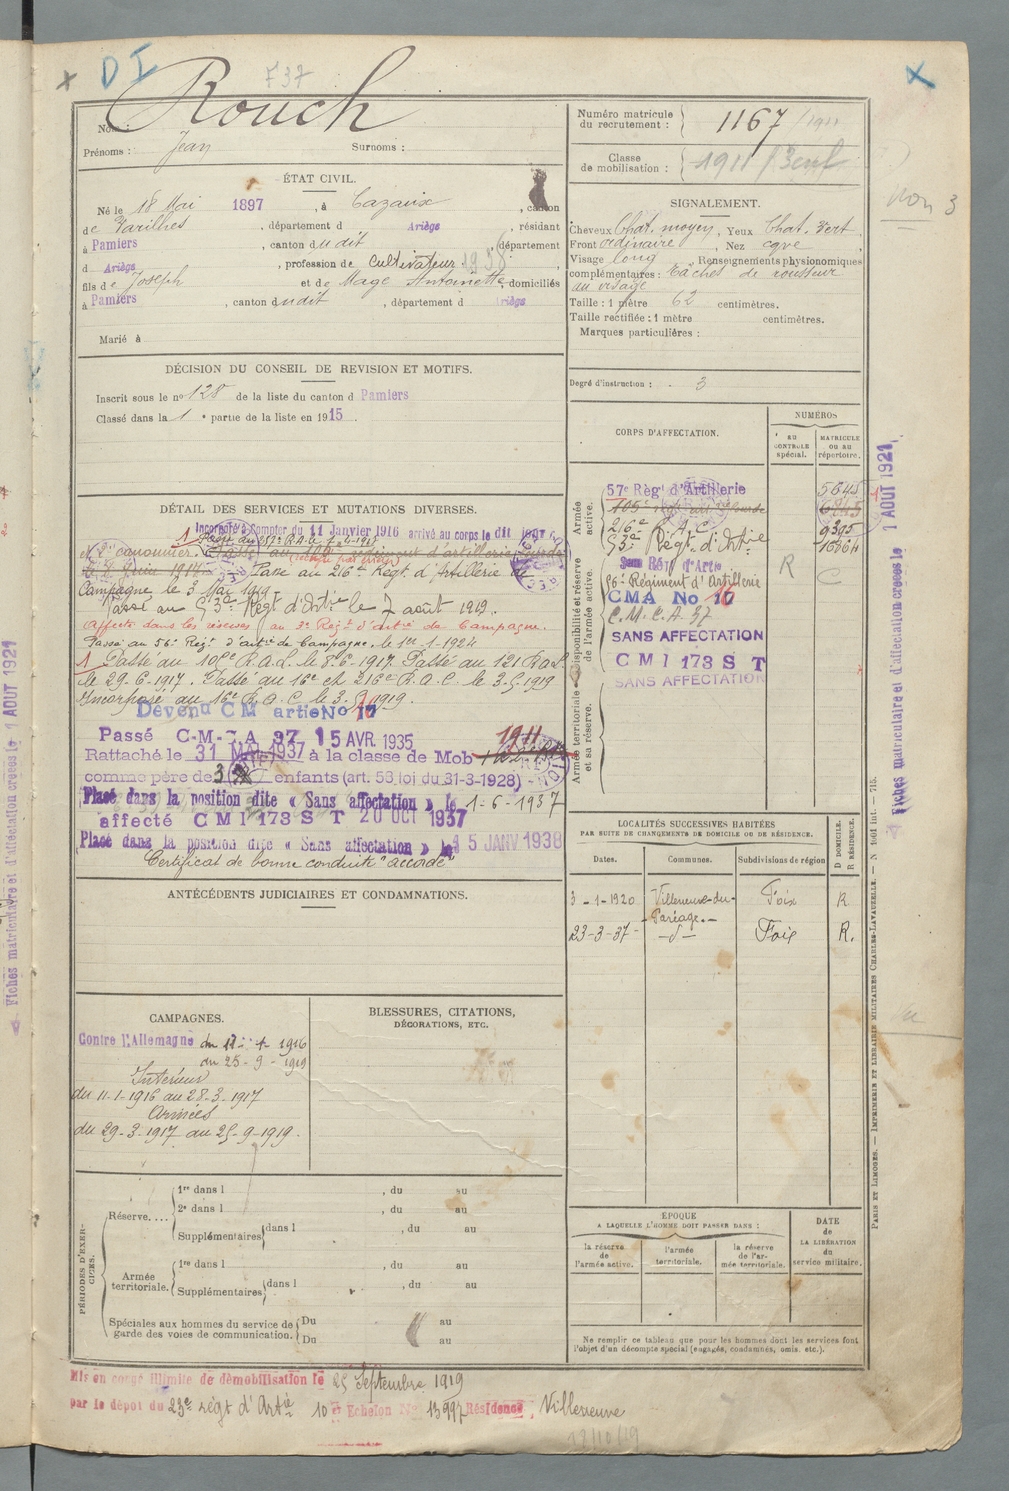 D I
F 37
Nom : Rouch
Prénoms : Jean Surnoms :
Numéro matricule du recrutement : 1167 / 1911
Classe de mobilisation : 1911 / 3 enf
Non 3
ÉTAT CIVIL.
Né le 18 Mai 1897, à Cazaux, canton
de Varilhes, département d Ariège, résidant
à Pamiers, canton dudit, département
d Ariège, profession de cultivateur 1938,
fils de Joseph et de Magé Antoinette, domiciliés
à Pamiers, canton dudit, département d Ariège
Marié à
SIGNALEMENT.
Cheveux Chat. moyen, Yeux Chat. Vert,
Front ordinaire, Nez cave,
Visage long, Renseignements physionomiques
complémentaires : taches de rousseur
au visage
Taille : 1 mètre 62 centimètres.
Taille rectifiée : 1 mètre centimètres.
Marques particulières :
Degré d'instruction : 3
DÉCISION DU CONSEIL DE REVISION ET MOTIFS.
Inscrit sous le n° 128 de la liste du canton d Pamiers
Classé dans la 1e partie de la liste en 1915.
DÉTAIL DES SERVICES ET MUTATIONS DIVERSES.
Incorporé à compter du 11 Janvier 1916 arrivé au corps le dit jour
et 2e canonnier.
Passé au 216e Régt. d'Artillerie de
Campagne le 3 Mai 1919
Passé au 23e Régt d'Artie le 7 août 1919.
Affecté dans les réserves au 3e Régt d'artie de Campagne.
Passé au 56e Régt d'artie de Campagne. le 1er-1-1924
1 Passé au 105e R.A.L. le 8.6e 1917. Passé au 121 R.a.L.
le 29.6.1917. Passé au 16e et 216e R.A.C. le 3.5.1919
Devenu CM artie No 17
Passé C-M-A 37 15 AVR. 1935
Rattaché le 31 MAI 1937 à la classe de Mob 1911
comme père de 3 enfants (art. 58 loi du 31-3-1928)
Placé dans la position dite « Sans affectation » le 1-6-1937
affecté CMI 173 S T 20 OCT 1937
Placé dans la position dite « Sans affectation » le 15 JANV 1938
Certificat de bonne conduite "accordé"
CORPS D'AFFECTATION.
NUMÉROS
AU CONTROLE spécial.
MATRICULE OU AU répertoire.
Armée active.
Disponibilité et réserve de l'armée active.
Armée territoriale et sa réserve.
57e Régt d'Artillerie 5645
216e R.A.C. 9395
23e Régt d'Artie 16864
56e Régiment d'Artillerie R C
CMA No 17
C.M.C.A 37
SANS AFFECTATION
C M I 173 S T
SANS AFFECTATION
ANTÉCÉDENTS JUDICIAIRES ET CONDAMNATIONS.
LOCALITÉS SUCCESSIVES HABITÉES
PAR SUITE DE CHANGEMENTS DE DOMICILE OU DE RÉSIDENCE.
Dates. Communes. Subdivisions de région D DOMICILE. R RÉSIDENCE.
3-1-1920 Villeneuve-du-Paréage.- Foix R
23-3-37- -d°- Foix R.
CAMPAGNES.
Contre l'Allemagne du 11-1-1916
au 25-9-1919
Intérieur
du 11-1-1916 au 28-3-1917
Armées
du 29-3-1917 au 25-9-1919.
BLESSURES, CITATIONS,
DÉCORATIONS, ETC.
PÉRIODES D'EXERCICES.
Réserve....
1re dans l , du au
2e dans l , du au
Supplémentaires dans l , du au
Armée territoriale.
1re dans l , du au
Supplémentaires dans l , du au
Spéciales aux hommes du service de garde des voies de communication.
Du au
Du au
ÉPOQUE
A LAQUELLE L'HOMME DOIT PASSER DANS :
la réserve de l'armée active.
l'armée territoriale.
la réserve de l'armée territoriale.
DATE de LA LIBÉRATION du service militaire.
Ne remplir ce tableau que pour les hommes dont les services font
l'objet d'un décompte spécial (engagés, condamnés, omis, etc.).
Mis en congé illimité de démobilisation le 25 Septembre 1919
par le dépôt du 23e régt d'Artie 10e Echelon No 13997 Résidence, Villeneuve
12/10/19
Fiches matriculaire et d'affectation créées le 1 AOUT 1921
Fiches matriculaire et d'affectation créées le 1 AOUT 1921
PARIS ET LIMOGES. — IMPRIMERIE ET LIBRAIRIE MILITAIRES CHARLES-LAVAUZELLE. —